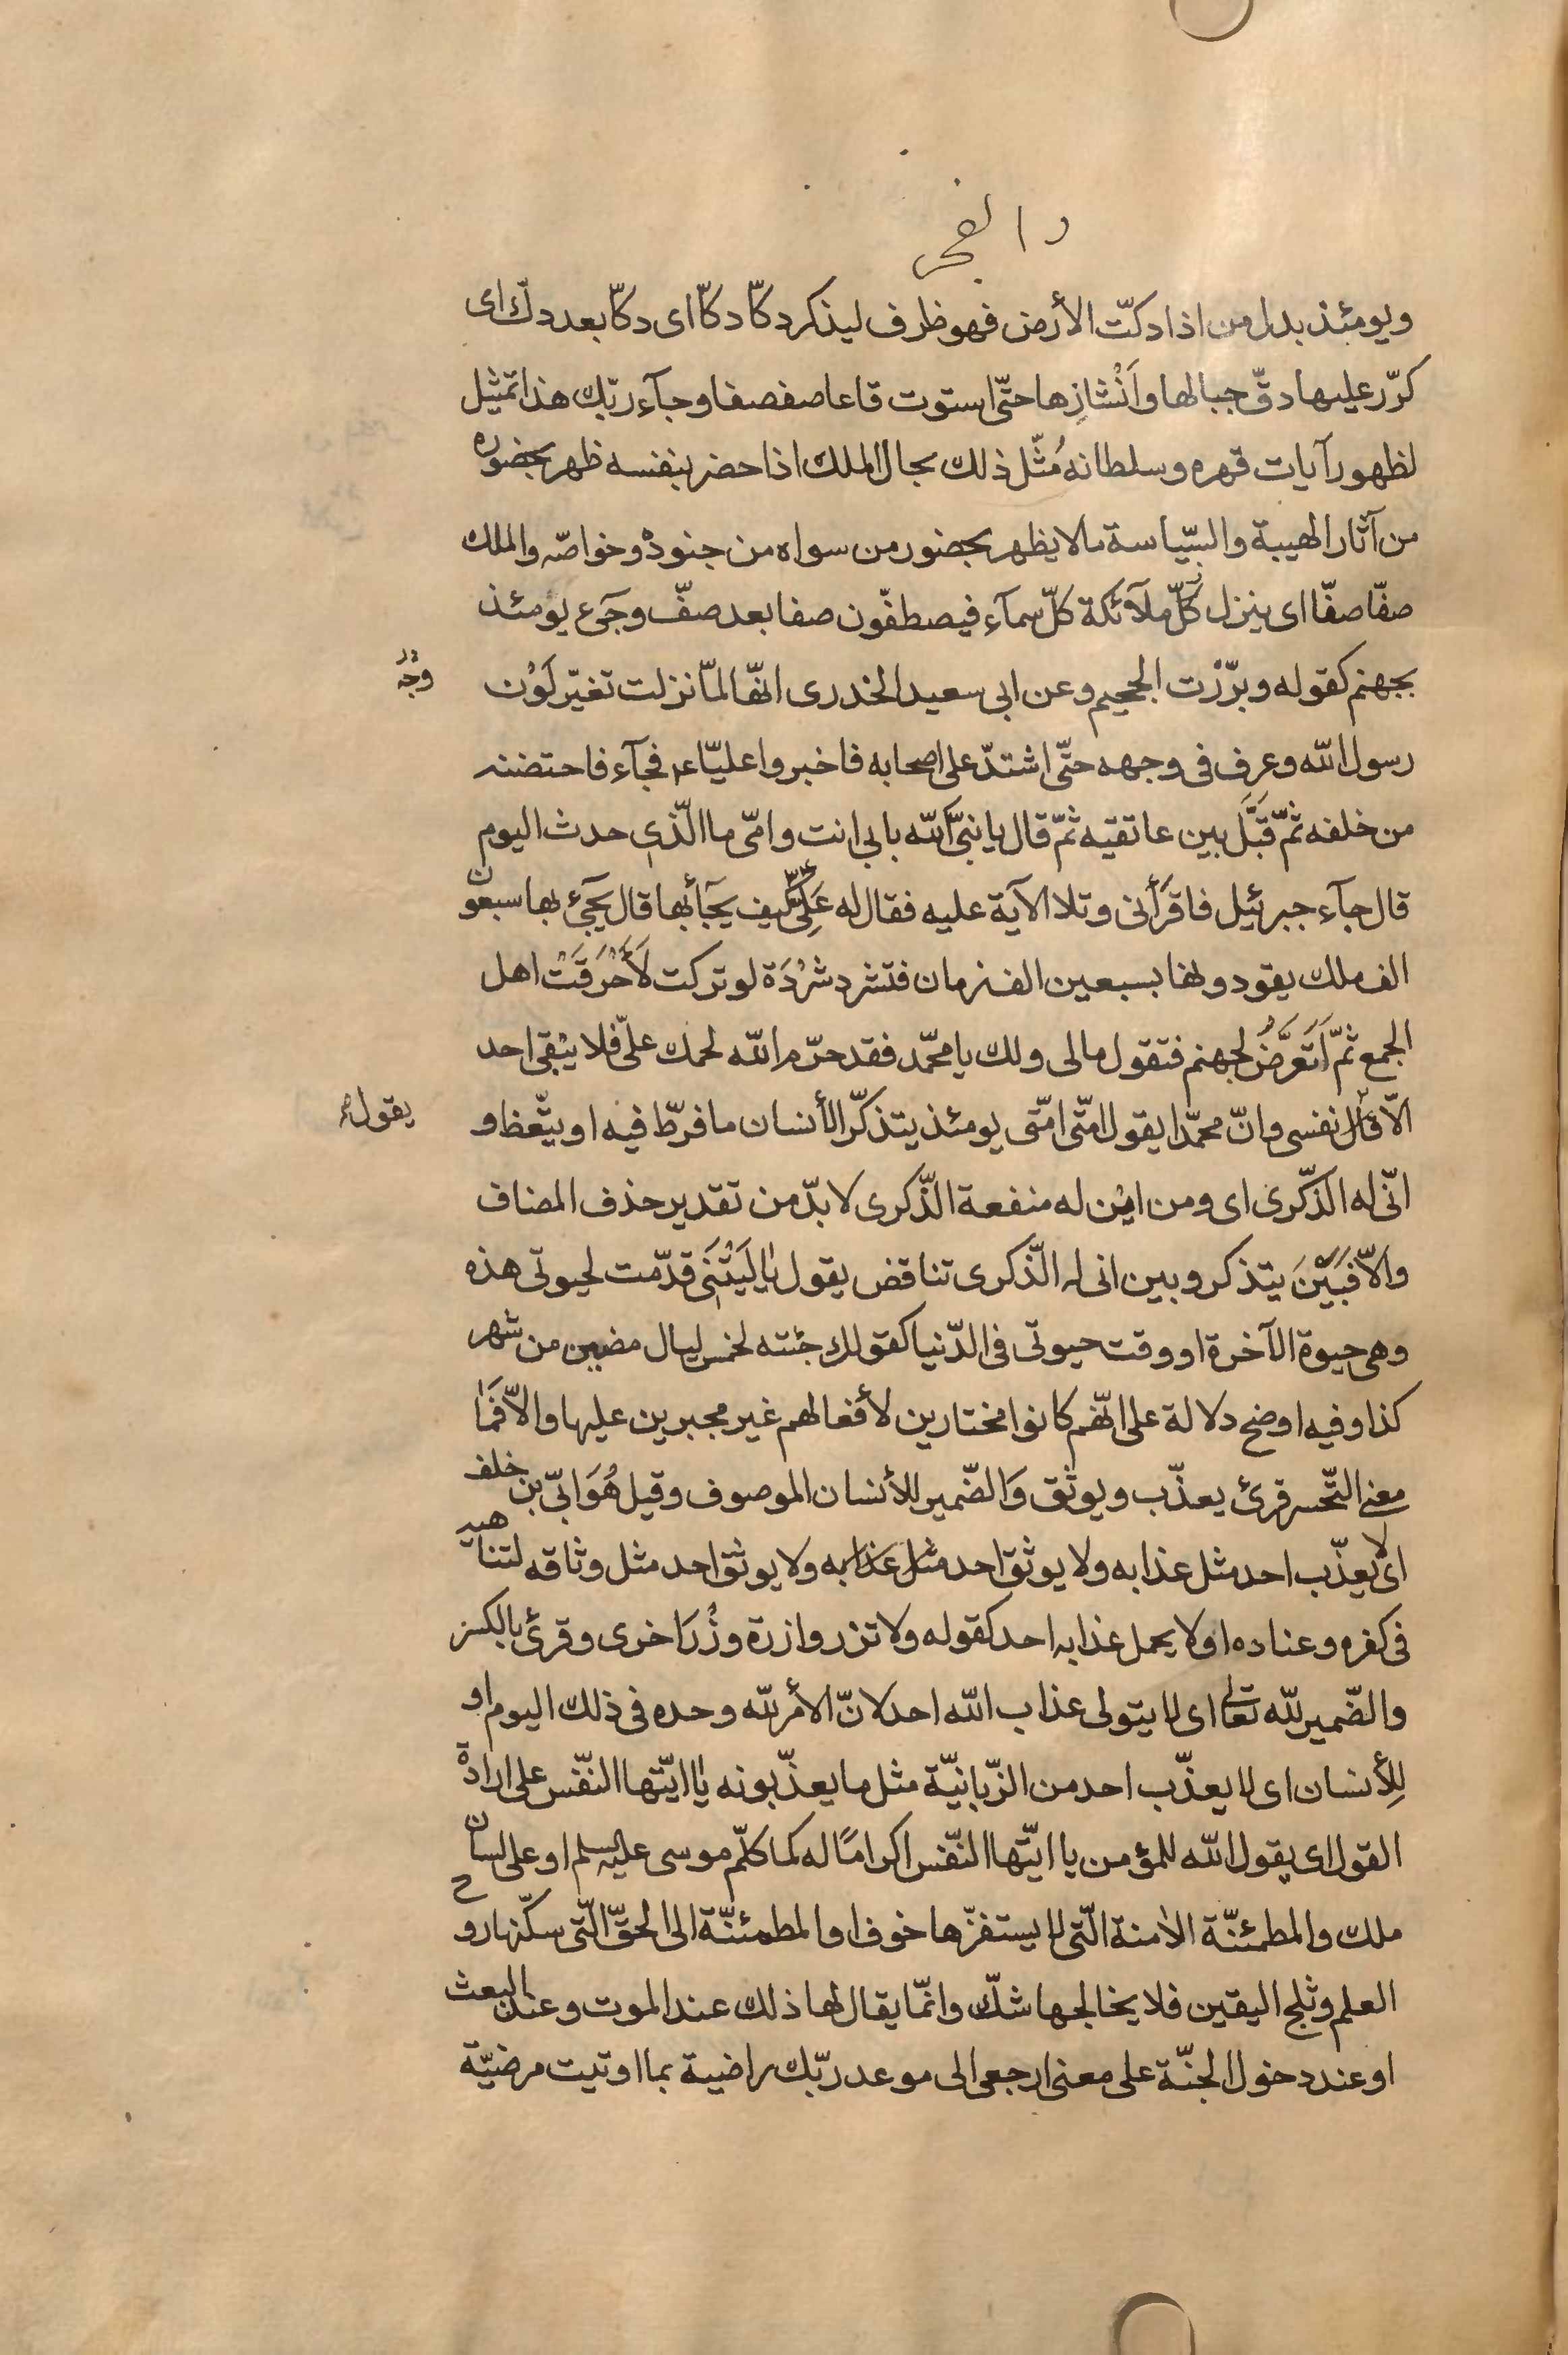 والفجر
ويومئذ بدل من اذا دكّت الأرض فهو ظرف ليذكر دكّا دكّا اى دكّا بعد دكّ اى
كرّر عليها دقّ جبالها وَاَنْشازِها حتّى استوت قاعا صفصفا وجآء ربّك هذا تمثيل
لظهور آيات قهره وسلطانه مُثّل ذلك بحال الملك اذا حضر بنفسه ظهر بحضوره
من آثار الهيبة والسّياسة مالا يظهر بحضور من سواه من جنوده وخواصّه والملك
صفّا صفّا اى ينزل كلّ ملآئكة كلّ سمآء فيصطفّون صفا بعد صفّ وجىء يومئذ
بجهنم كقوله وبرّزت الجحيم وعن ابى سعيد الخدرى انّها لمّا نزلت تغيّر لَوْن
وجْه
رسول الله وعرف فى وجهه حتّى اشتدّ على اصحابه فاخبروا عليّا ع فجآء فاحتضنه
من خلفه ثمّ قَبَّلَ بين عاتقيه ثمّ قال يا نبىّ الله بابى انت وامّى ما الّذى حدث اليوم
قال جآء جبرئيل فاقرَأنى وتلا الآية عليه فقال له عَلِىّ كيف يجآء بها قال يجىء بها سبعون
الف ملك يقودونها بسبعين الف زمان فتشرد شَرْدَة لو تركت لَأَحْرَقَتْ اهل
الجمع ثمّ اَتَعَرَّضُ لجهنم فتقول مالى ولك يا محمّد فقد حرّم الله لحمك علىّ فلا يبْقى احد
الّا قال نفسى وانّ محمّدا يقول امّتى امّتى يومئذ يتذكّر الأنسان ما فرّط فيه او يتّعظ و
يقول
انّى له الذّكرى اى ومن ايْن له منفعة الذّكرى لا بدّ من تقدير حذف المضاف
والّا فبَيْنَ يتذكر وبين انى له الذّكرى تناقض يقول يا لَيْتَنى قدّمت لحيوتى هذه
وهى حيوة الآخرة او وقت حيوتى فى الدّنيا كقولك جئته لخمس ليال مضين من شهر
كذا وفيه اوضح دلالة على انّهم كانوا مختارين لأفعالهم غير مجبرين عليها والّا فَما
معنى التّحسر قرئ يعذّب ويوثق وَالضّمير للأنسان الموصوف وقيل هُوَ ابىّ بن خلف
اى لا يعذّب احد مثل عذابه ولا يوثق احد مثل عذابه ولا يوثق احد مثل وثاقه لتناهيه
فى كفره وعناده او لا يحمل عذابه احد كقوله ولا تزر وازرة وزْرَ اخرى وقرئ بالكسر
والضّمير لله تعالى اى لا يتولى عذاب الله احد لانّ الأمر لله وحده فى ذلك اليوم او
لِلأنسان اى لا يعذّب احد من الزّبانيّة مثل ما يعذّبونه يا ايّتها النّفس على ارادة
القول اى يقول الله للمؤمن يا ايّتها النّفس اكرامًا له كما كلّم موسى عليه السلم او على لسان
ملك والمطمئنّة الآمنة الّتى لا يستفزّها خوف او المطمئنّة الى الحقّ الّتى سكّنها روح
العلم وثلج اليقين فلا يخالجها شكّ وانّما يقال لها ذلك عند الموت وعند البعث
او عند دخول الجنّة على معنى ارجعى الى موعد ربّك راضية بما اوتيت مرضيّة